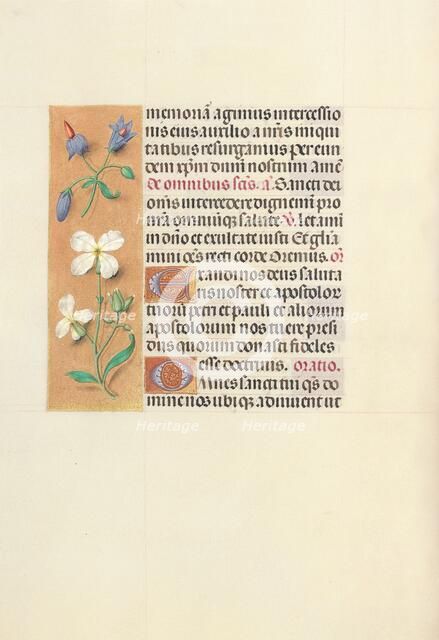 memoriā agimus intercessio
nis eius auxilio a nr̄is iniqui
tatibus resurgamus per eun
dem xp̄m dn̄m nostrum amē
De omnibus sc̄is. a. Sancti dei
om̄s intercedere dignemī pro
nr̄a omniūqȝ salute ℣. Letamī
in dn̄o et exultate iusti Et gl̄ia
mini oēs recti corde Oremus. or̄
Exaudi nos deus saluta
ris noster et apostolor
tuorū petri et pauli et aliorum
apostolorum nos tuere presi
diis quorum donasti fideles
esse doctrinis. oratio.
Omnes sancti tui qs̄ do
mine nos ubiqȝ adiuvent ut
Heritage
Heritage
Heritage
Heritage
Heritage